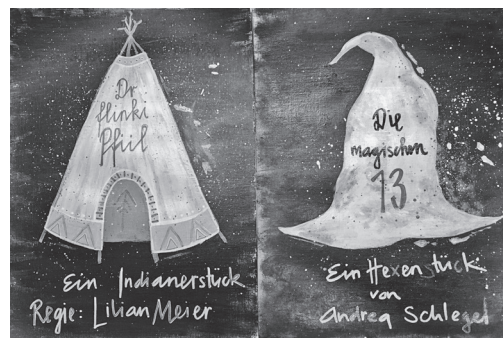 Dr
flinki
Pfiil
Ein Indianerstück
Regie: Lilian Meier
Die
magischen
13
Ein Hexenstück
von
Andrea Schlegel